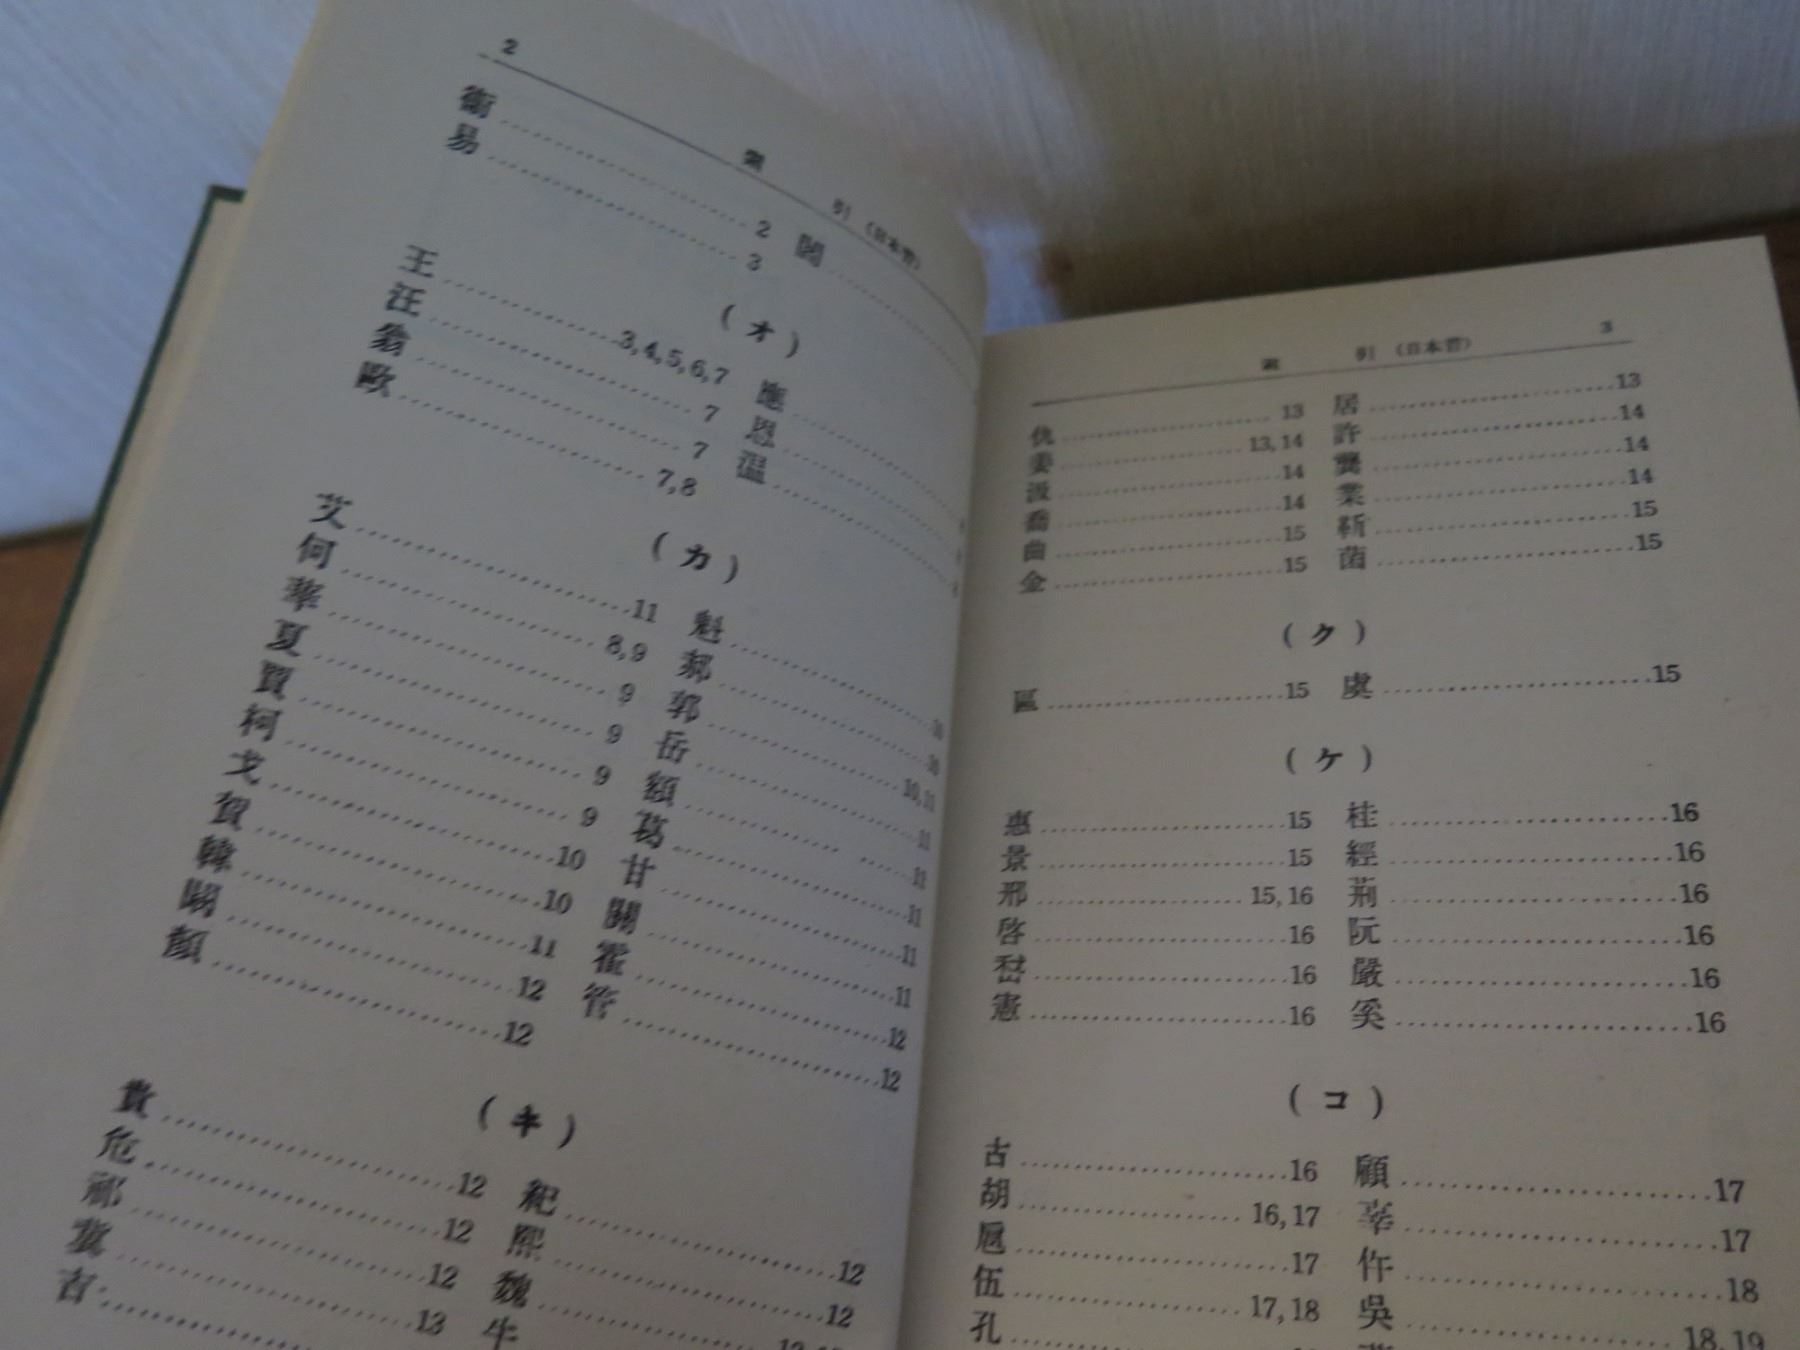 2
索 引 (日本音)
衞 2 閻
易 3
(オ)
王 3,4,5,6,7 應
汪 7 恩
翁 7 温
歐 7,8
(カ)
艾 11 魁 10
何 8,9 郝 10
華 9 郭 10,11
夏 9 岳 11
賈 9 額 11
柯 9 葛 11
戈 10 甘 11
賀 10 關 11
韓 11 霍 12
闞 12 管 12
顏 12
(キ)
貴 12 紀 12
危 12 熙 12
祁 12 魏
冀 13 牛
吉
索 引 (日本音) 3
仇 13 居 13
姜 13,14 許 14
汲 14 龔 14
喬 14 業 14
曲 15 靳 15
金 15 菌 15
(ク)
區 15 虞 15
(ケ)
惠 15 桂 16
景 15 經 16
邢 15,16 荊 16
啓 16 阮 16
嵆 16 嚴 16
憲 16 奚 16
(コ)
古 16 顧 17
胡 16,17 辜 17
扈 17 仵 18
伍 17,18 吳 18,19
孔